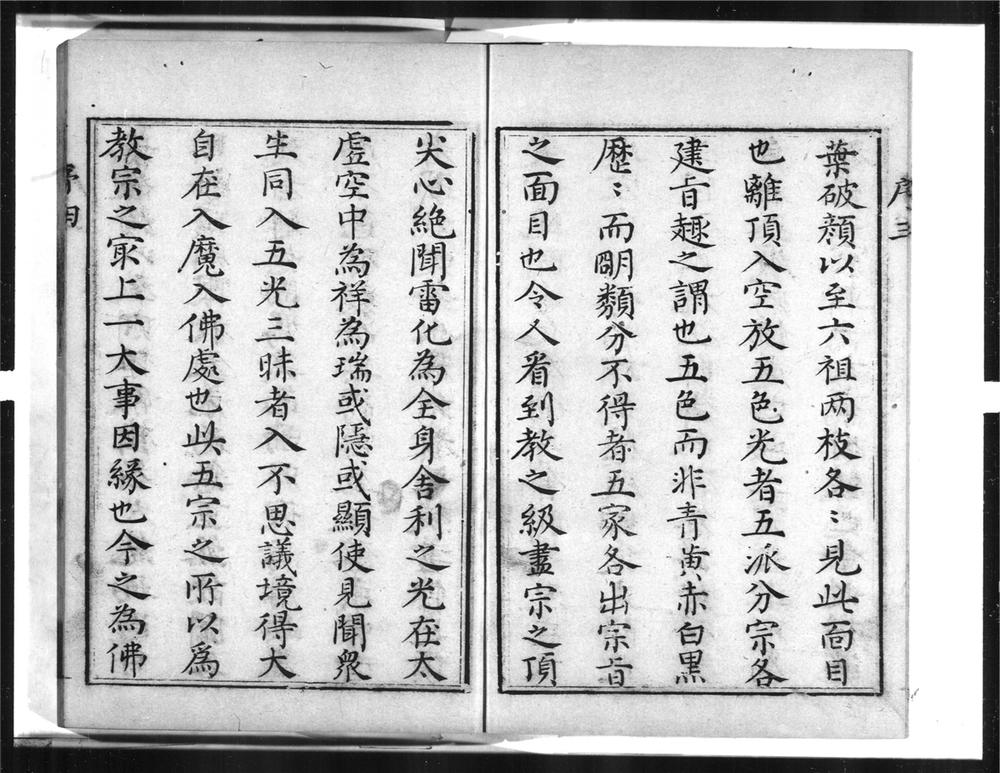 序三
葉破顔以至六祖两枝各〻見此面目
也離頂入空放五色光者五派分宗各
建旨趣之謂也五色而非青黄赤白黒
歴〻而明類分不得者五家各出宗旨
之面目也令人看到教之級盡宗之頂
尖心絶聞雷化為全身舎利之光在太
虚空中為祥為瑞或隠或顯使見聞衆
生同入五光三昧者入不思議境得大
自在入魔入佛處也此五宗之所以為
教宗之冣上一大事因縁也今之為佛
序四